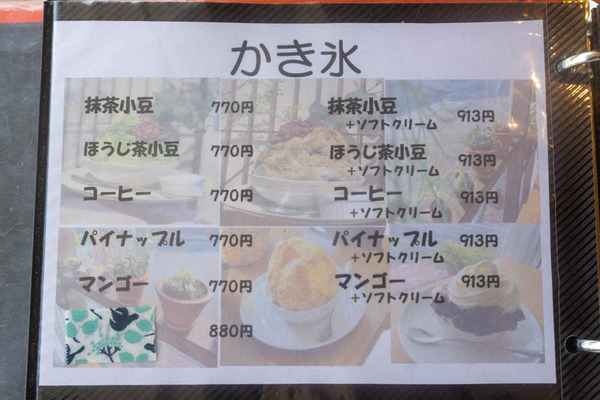 かき氷
抹茶小豆 770円
ほうじ茶小豆 770円
コーヒー 770円
パイナップル 770円
マンゴー 770円
880円
抹茶小豆 913円
+ソフトクリーム
ほうじ茶小豆 913円
+ソフトクリーム
コーヒー 913円
+ソフトクリーム
パイナップル 913円
+ソフトクリーム
マンゴー 913円
+ソフトクリーム